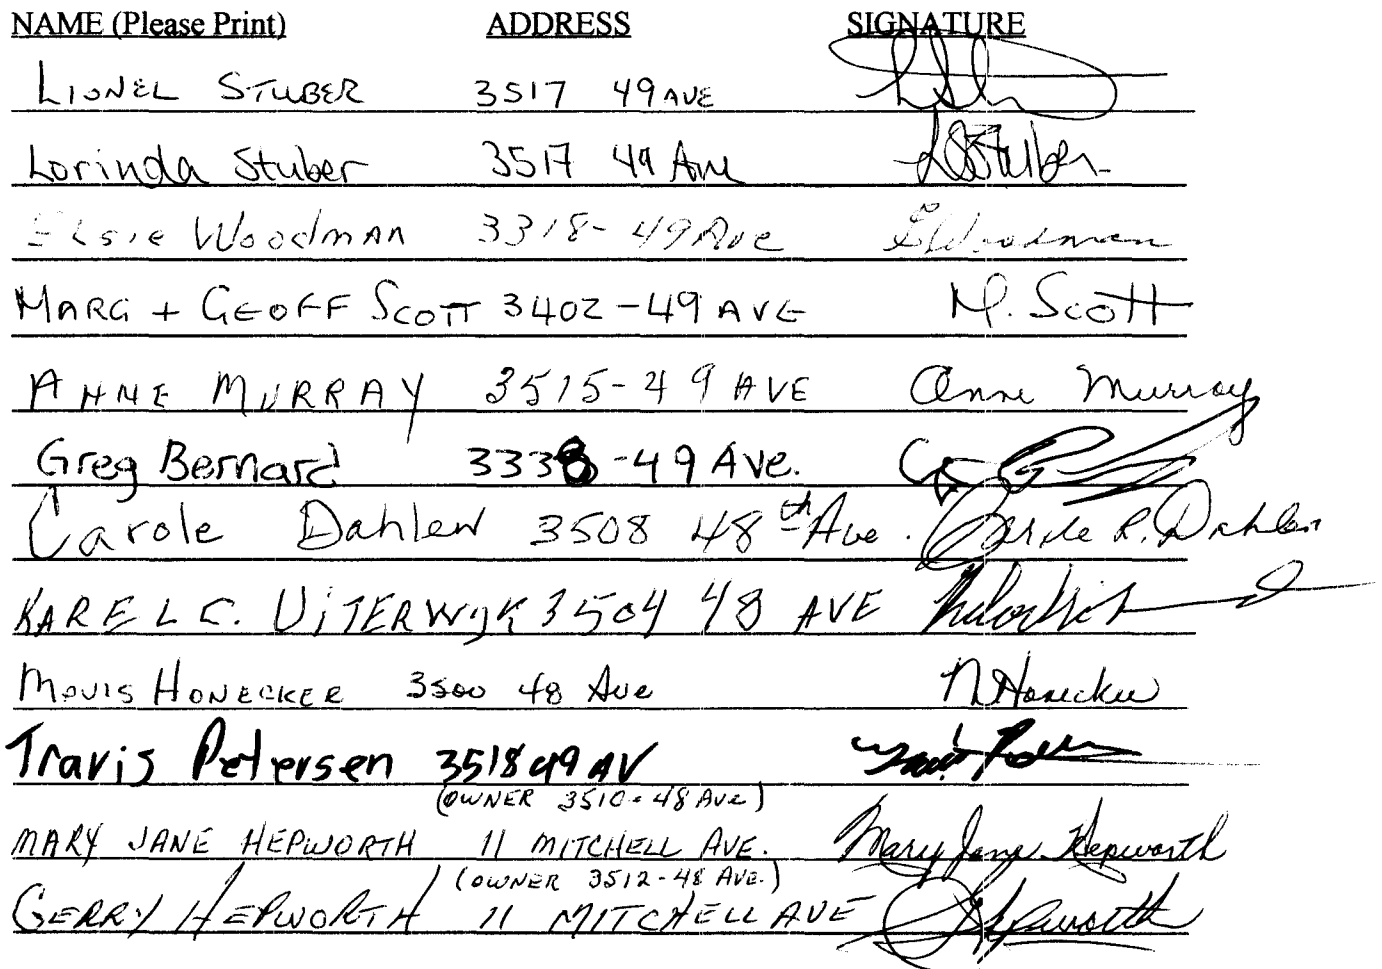 NAME (Please Print) ADDRESS SIGNATURE
LIONEL STUBER 3517 49 AVE
Lorinda Stuber 3517 49 Ave LSStuber
Elsie Woodman 3318-49 Ave EWoodman
MARG + GEOFF SCOTT 3402-49 AVE M. Scott
ANNE MURRAY 3515-49 AVE Anne Murray
Greg Bernard 3338-49 Ave.
Carole Dahlen 3508 48th Ave. Carole R. Dahlen
KAREL C. UiTERWYK 3504 48 AVE
Mavis HONECKER 3500 48 Ave M Honecker
Travis Petersen 3518 49 AV
(OWNER 3510-48 Ave)
MARY JANE HEPWORTH 11 MITCHELL AVE. Mary Jane Hepworth
(OWNER 3512-48 AVE.)
GERRY HEPWORTH 11 MITCHELL AVE GHepworth